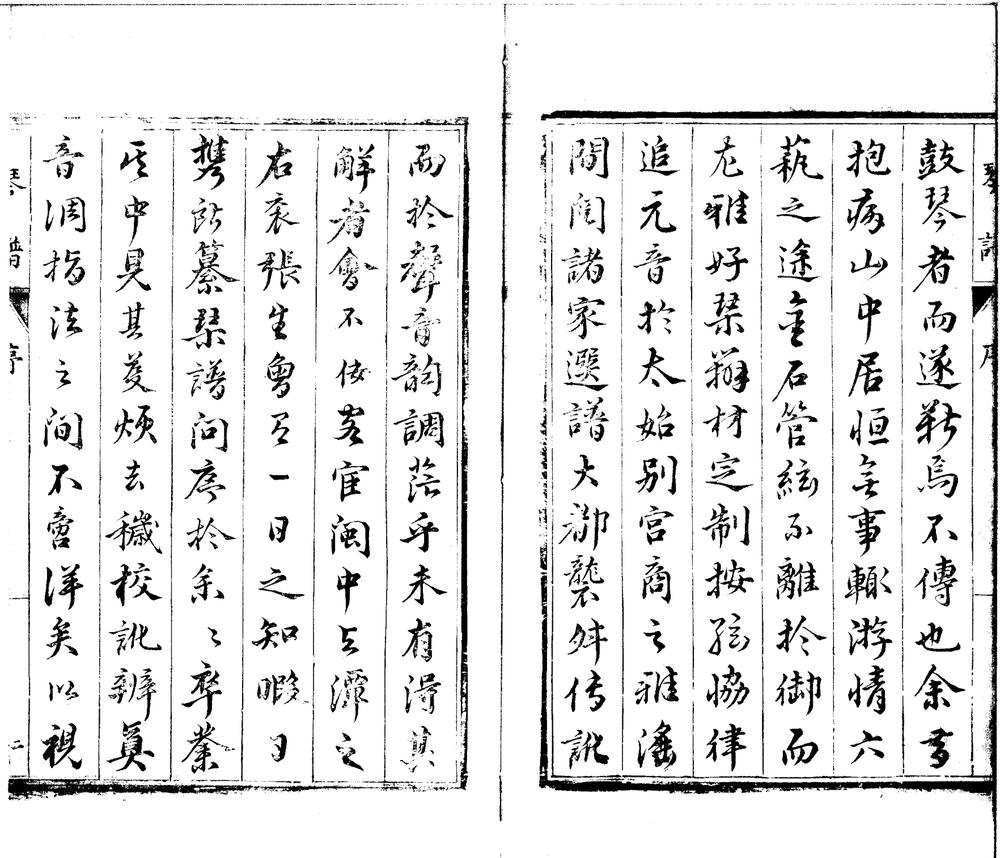 鼓琴者而遂輟焉不傳也余昔
抱病山中居恒無事輒游情六
藝之途金石管絃不離於御而
尤雅好琴辨材定制按弦協律
追元音於太始别宮商之雅滛
間閲諸家選譜大都襲舛傳訛
而於聲音韵調茫乎未有得其
解者會不佞宦閩中与潭之
右衮張生會有一日之知暇日
携所纂琴譜问序於余々卒業
其中見其芟煩去穢校訛辨真
音调指法之间不啻详矣以視
琴譜 序
琴譜 序 二